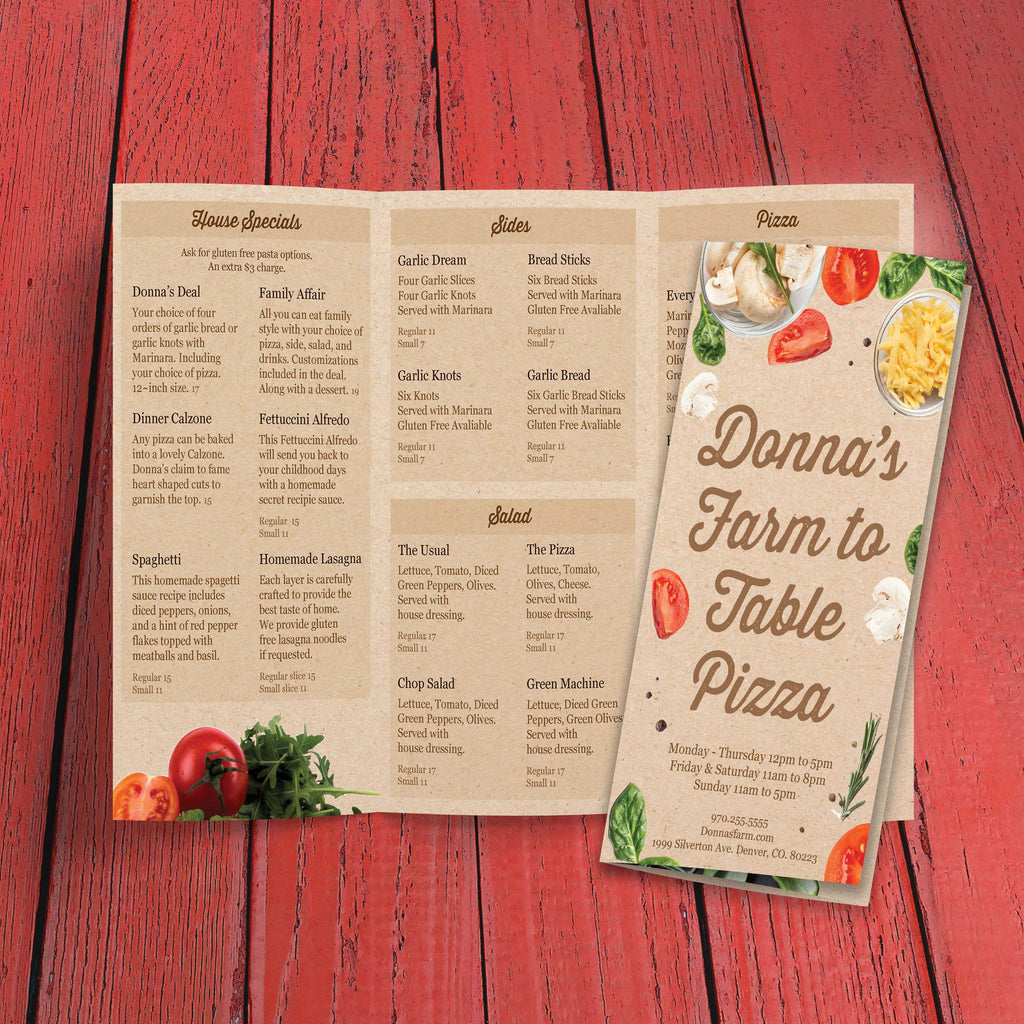 House Specials
Ask for gluten free pasta options.
An extra $3 charge.
Donna's Deal
Your choice of four
orders of garlic bread or
garlic knots with
Marinara. Including
your choice of pizza.
12~inch size. 17
Family Affair
All you can eat family
style with your choice of
pizza, side, salad, and
drinks. Customizations
included in the deal.
Along with a dessert. 19
Dinner Calzone
Any pizza can be baked
into a lovely Calzone.
Donna's claim to fame
heart shaped cuts to
garnish the top. 15
Fettuccini Alfredo
This Fettuccini Alfredo
will send you back to
your childhood days
with a homemade
secret recipie sauce.
Regular 15
Small 11
Spaghetti
This homemade spagetti
sauce recipe includes
diced peppers, onions,
and a hint of red pepper
flakes topped with
meatballs and basil.
Regular 15
Small 11
Homemade Lasagna
Each layer is carefully
crafted to provide the
best taste of home.
We provide gluten
free lasagna noodles
if requested.
Regular slice 15
Small slice 11
Sides
Garlic Dream
Four Garlic Slices
Four Garlic Knots
Served with Marinara
Regular 11
Small 7
Bread Sticks
Six Bread Sticks
Served with Marinara
Gluten Free Avaliable
Regular 11
Small 7
Garlic Knots
Six Knots
Served with Marinara
Gluten Free Avaliable
Regular 11
Small 7
Garlic Bread
Six Garlic Bread Sticks
Served with Marinara
Gluten Free Avaliable
Regular 11
Small 7
Salad
The Usual
Lettuce, Tomato, Diced
Green Peppers, Olives.
Served with
house dressing.
Regular 17
Small 11
The Pizza
Lettuce, Tomato,
Olives, Cheese.
Served with
house dressing.
Regular 17
Small 11
Chop Salad
Lettuce, Tomato, Diced
Green Peppers, Olives.
Served with
house dressing.
Regular 17
Small 11
Green Machine
Lettuce, Diced Green
Peppers, Green Olives
Served with
house dressing.
Regular 17
Small 11
Pizza
Donna's
Farm to
Table
Pizza
Monday - Thursday 12pm to 5pm
Friday & Saturday 11am to 8pm
Sunday 11am to 5pm
970.255.5555
Donnasfarm.com
1999 Silverton Ave. Denver, CO. 80223